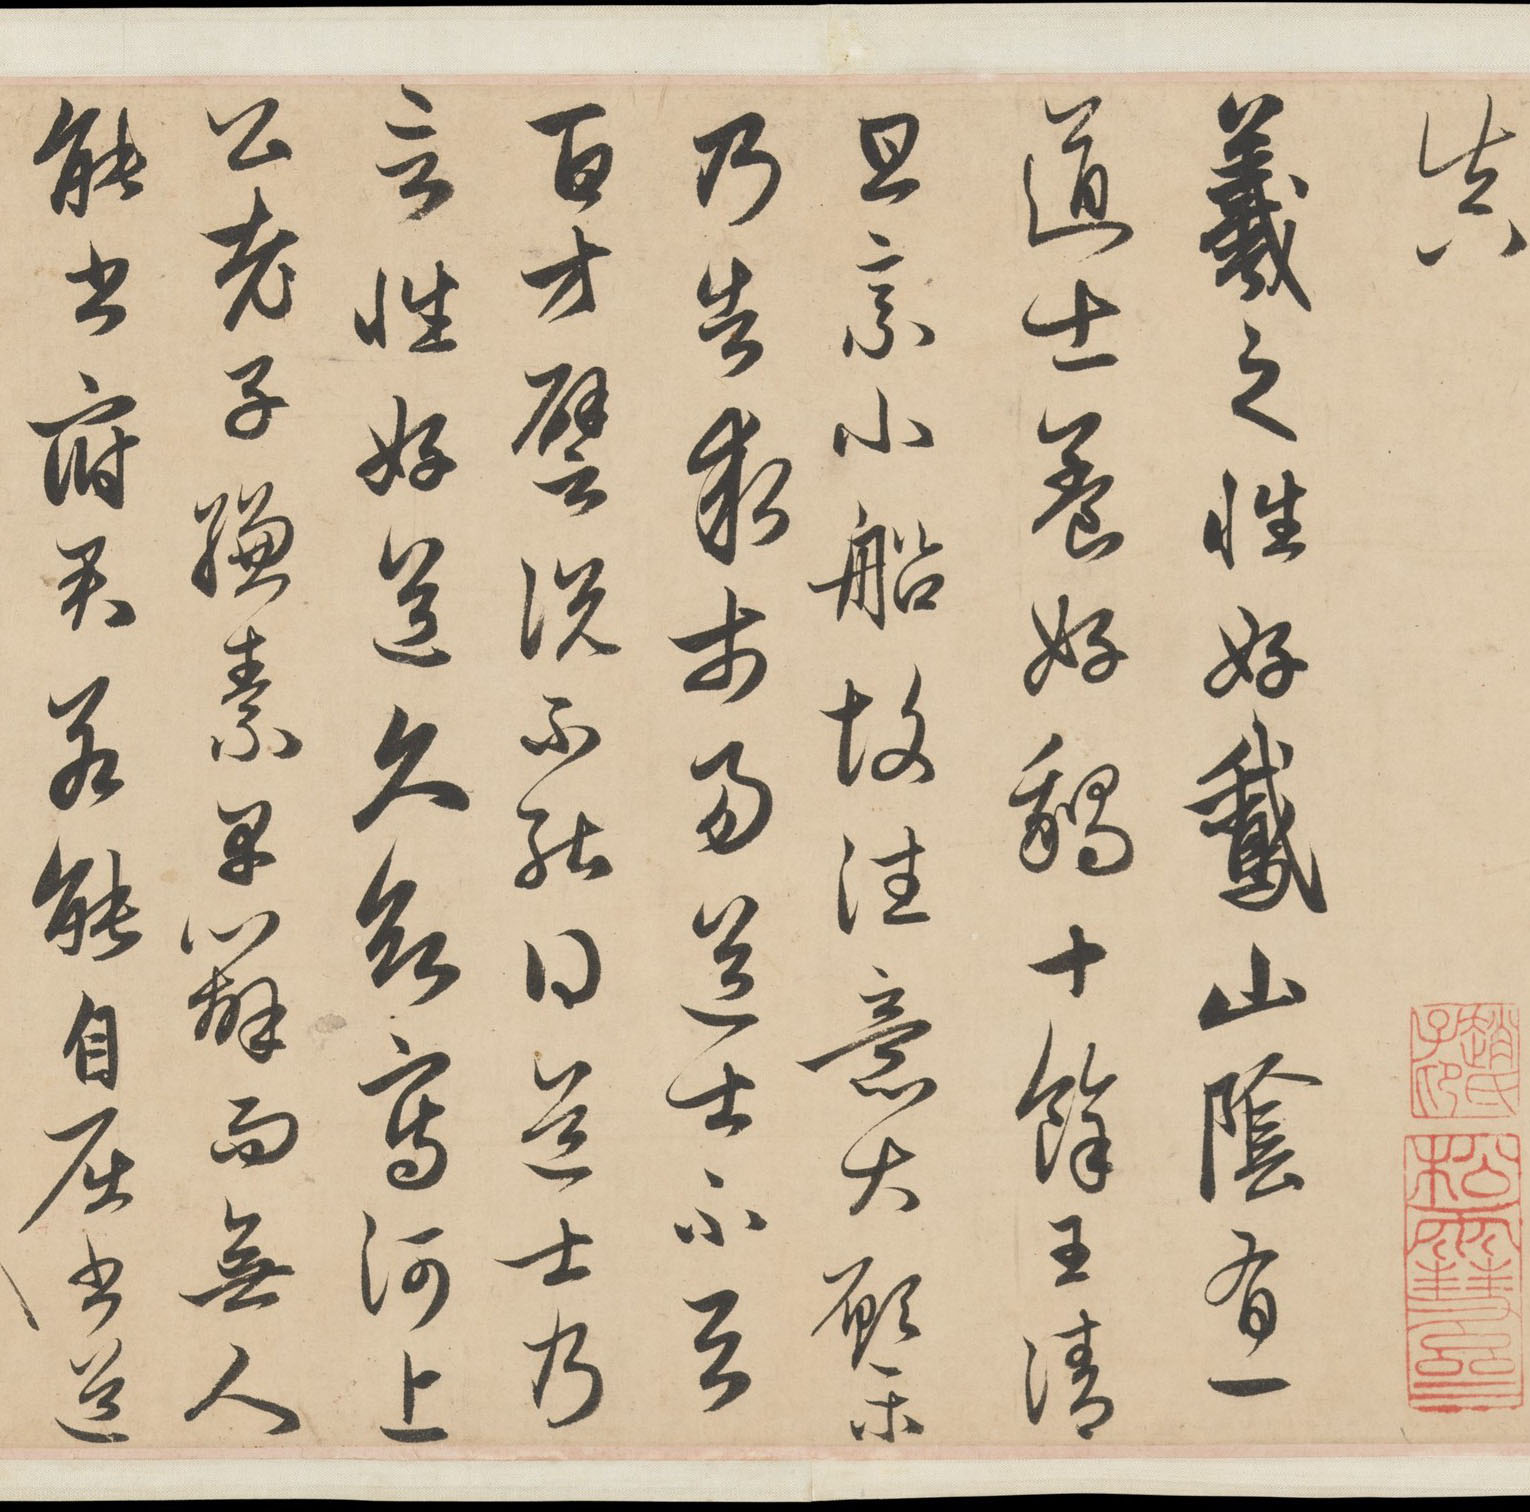 真
羲之性好鵞山陰有一
道士養好鵝十餘王清
旦乘小船故往意大願樂
乃告求市易道士不與
百方譬說不能得道士乃
言性好道久欲寫河上
公老子縑素早辦而無人
能書府君若能自屈書道
趙氏子印
松雪齋